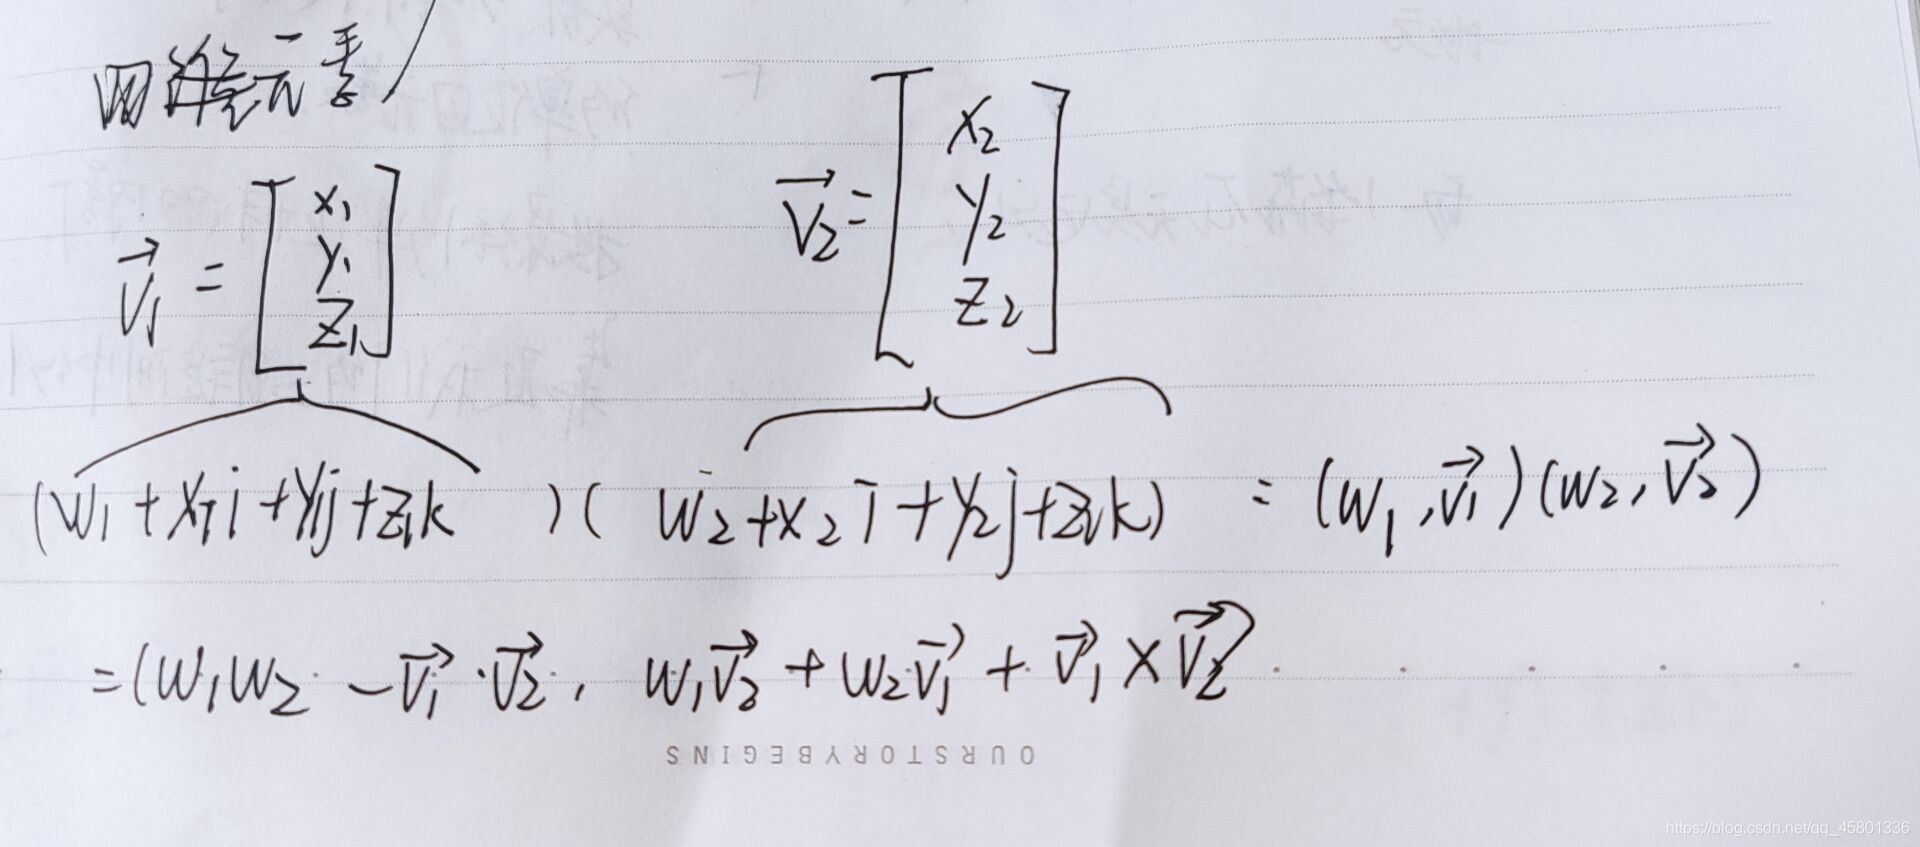 四维元素
V₁ = [x₁ y₁ z₁]
V₂ = [x₂ y₂ z₂]
(w₁+x₁i+y₁j+z₁k)(w₂+x₂i+y₂j+z₂k) = (w₁,v₁)(w₂,v₂)
=(w₁w₂-v₁·v₂, w₁v₂+w₂v₁+v₁×v₂)
OURSTORYBEGINS
https://blog.csdn.net/qq_45801336